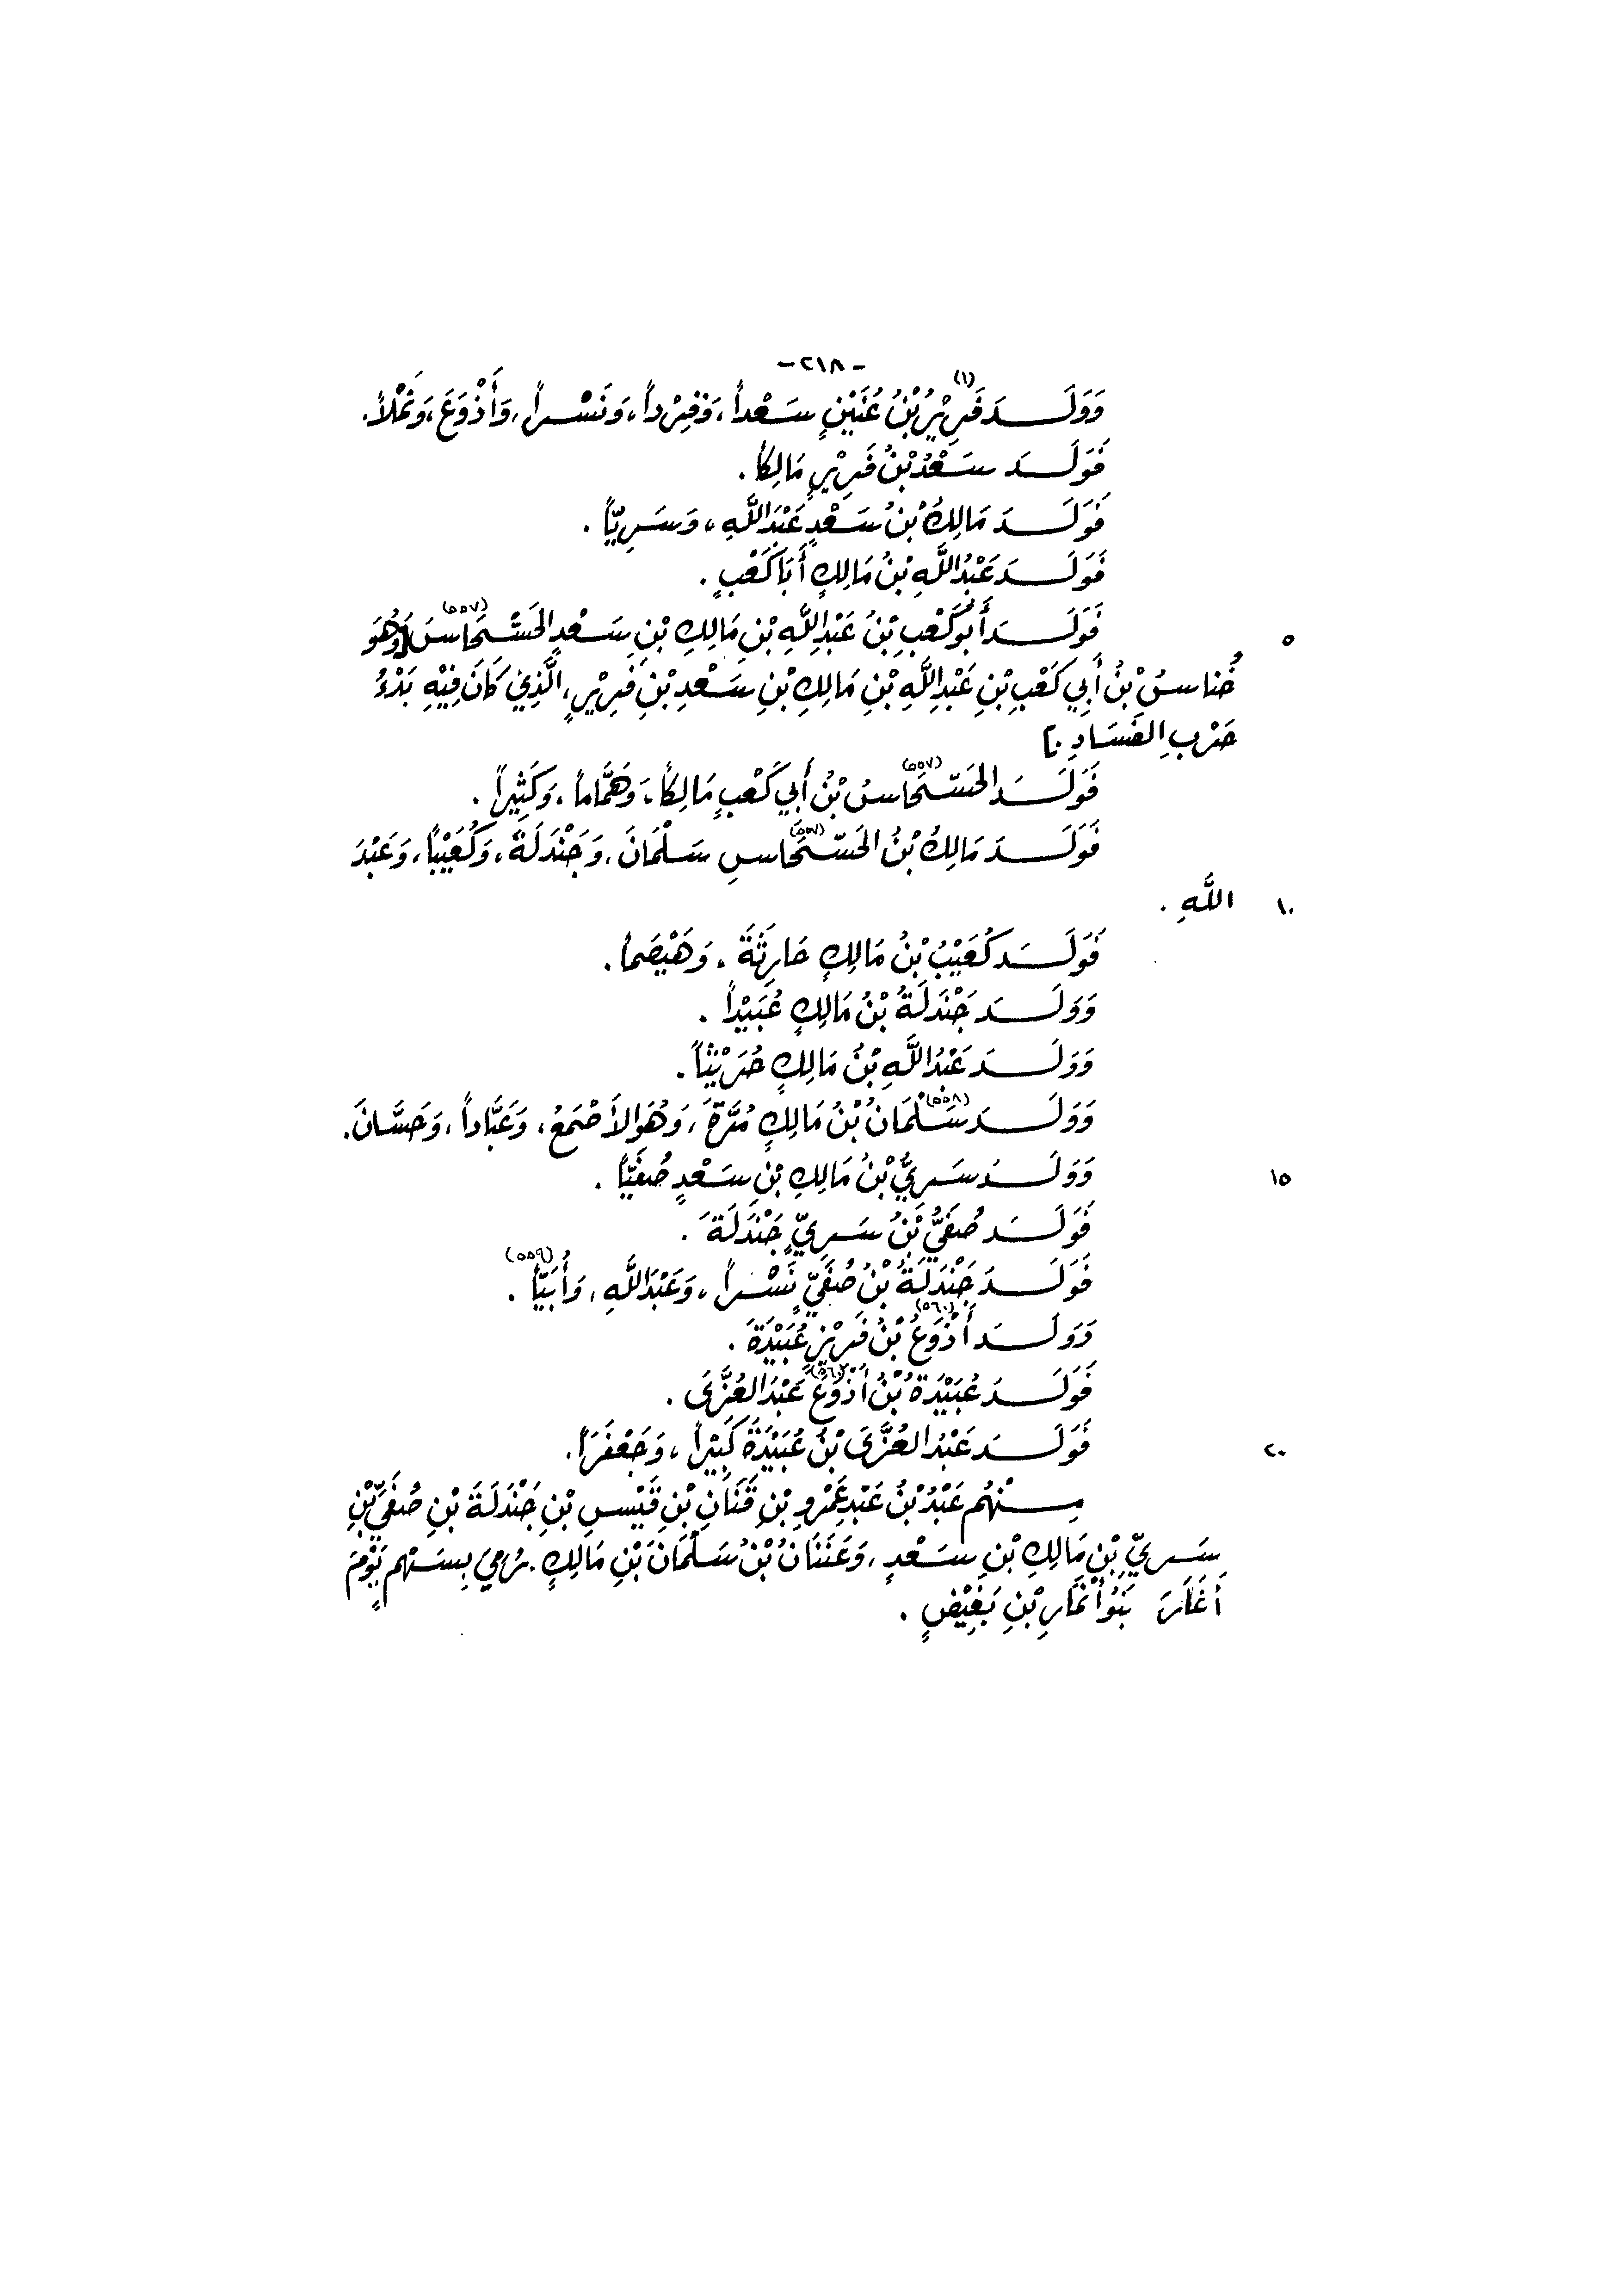 -٢١٨-
وَوَلَــدَ فَرِيْرُ(١) بْنُ عُنَيْنٍ سَعْداً، وَفِرْداً، وَنَسْراً، وَأَذْوَعَ، وَثَمْلاً.
فَوَلَــدَ سَعْدُ بْنُ فَرِيْرٍ مَالِكاً.
فَوَلَــدَ مَالِكُ بْنُ سَعْدٍ عَبْدَ اللَّهِ، وَسَرِيّاً.
فَوَلَــدَ عَبْدُ اللَّهِ بْنُ مَالِكٍ أَبَا كَعْبٍ.
فَوَلَــدَ أَبُو كَعْبِ بْنُ عَبْدِ اللَّهِ بْنِ مَالِكِ بْنِ سَعْدٍ الحَسْحَاسَ(٥٥٧) [وَهُوَ ٥
خُنَاسُ بْنُ أَبِي كَعْبِ بْنِ عَبْدِ اللَّهِ بْنِ مَالِكِ بْنِ سَعْدِ بْنِ فَرِيْرٍ، الَّذِي كَانَ فِيْهِ بَدْءُ
حَرْبِ الفَسَادِ.]
فَوَلَــدَ الحَسْحَاسُ(٥٥٧) بْنُ أَبِي كَعْبٍ مَالِكاً، وَهَمَّاماً، وَكَثِيراً.
فَوَلَــدَ مَالِكُ بْنُ الحَسْحَاسِ(٥٥٧) سَلْمَانَ، وَجَنْدَلَةَ، وَكُعَيْباً، وَعَبْدَ
اللَّهِ. ١٠
فَوَلَــدَ كُعَيْبُ بْنُ مَالِكٍ حَارِثَةَ، وَهَيْصَماً.
وَوَلَــدَ جَنْدَلَةُ بْنُ مَالِكٍ عُبَيْداً.
وَوَلَــدَ عَبْدُ اللَّهِ بْنُ مَالِكٍ حُرَيْثاً.
وَوَلَــدَ سَلْمَانُ(٥٥٨) بْنُ مَالِكٍ مُرَّةَ، وَهُوَ الأَصْمَعُ، وَعَبَّاداً، وَحَسَّانَ.
وَوَلَــدَ سَرِيُّ بْنُ مَالِكِ بْنِ سَعْدٍ صُفَيّاً. ١٥
فَوَلَــدَ صُفَيُّ بْنُ سَرِيٍّ جَنْدَلَةَ.
فَوَلَــدَ جَنْدَلَةُ بْنُ صُفَيٍّ نَسْراً، وَعَبْدَ اللَّهِ، وَأُبَيّاً(٥٥٩).
وَوَلَــدَ أَذْوَعُ(٥٦٠) بْنُ فَرِيْرٍ عُبَيْدَةَ.
فَوَلَــدَ عُبَيْدَةُ بْنُ أَذْوَعَ(٥٦٠) عَبْدَ العُزَّى.
فَوَلَــدَ عَبْدُ العُزَّى بْنُ عُبَيْدَةَ كَبِيْراً، وَجَعْفَرَاً. ٢٠
مِــنْهُم عَبْدُ بْنُ عَبْدِ عَمْرِو بْنِ قَنَانِ بْنِ قَيْسِ بْنِ جَنْدَلَةَ بْنِ صُفَيِّ بْنِ
سَرِيِّ بْنِ مَالِكِ بْنِ سَعْدٍ، وَعَنَنَانُ بْنُ سَلْمَانَ بْنِ مَالِكٍ. رُمِيَ بِسَهْمٍ يَوْمَ
أَغَارَ بَنُو أَنْمَارِ بْنِ بَغِيْضٍ.